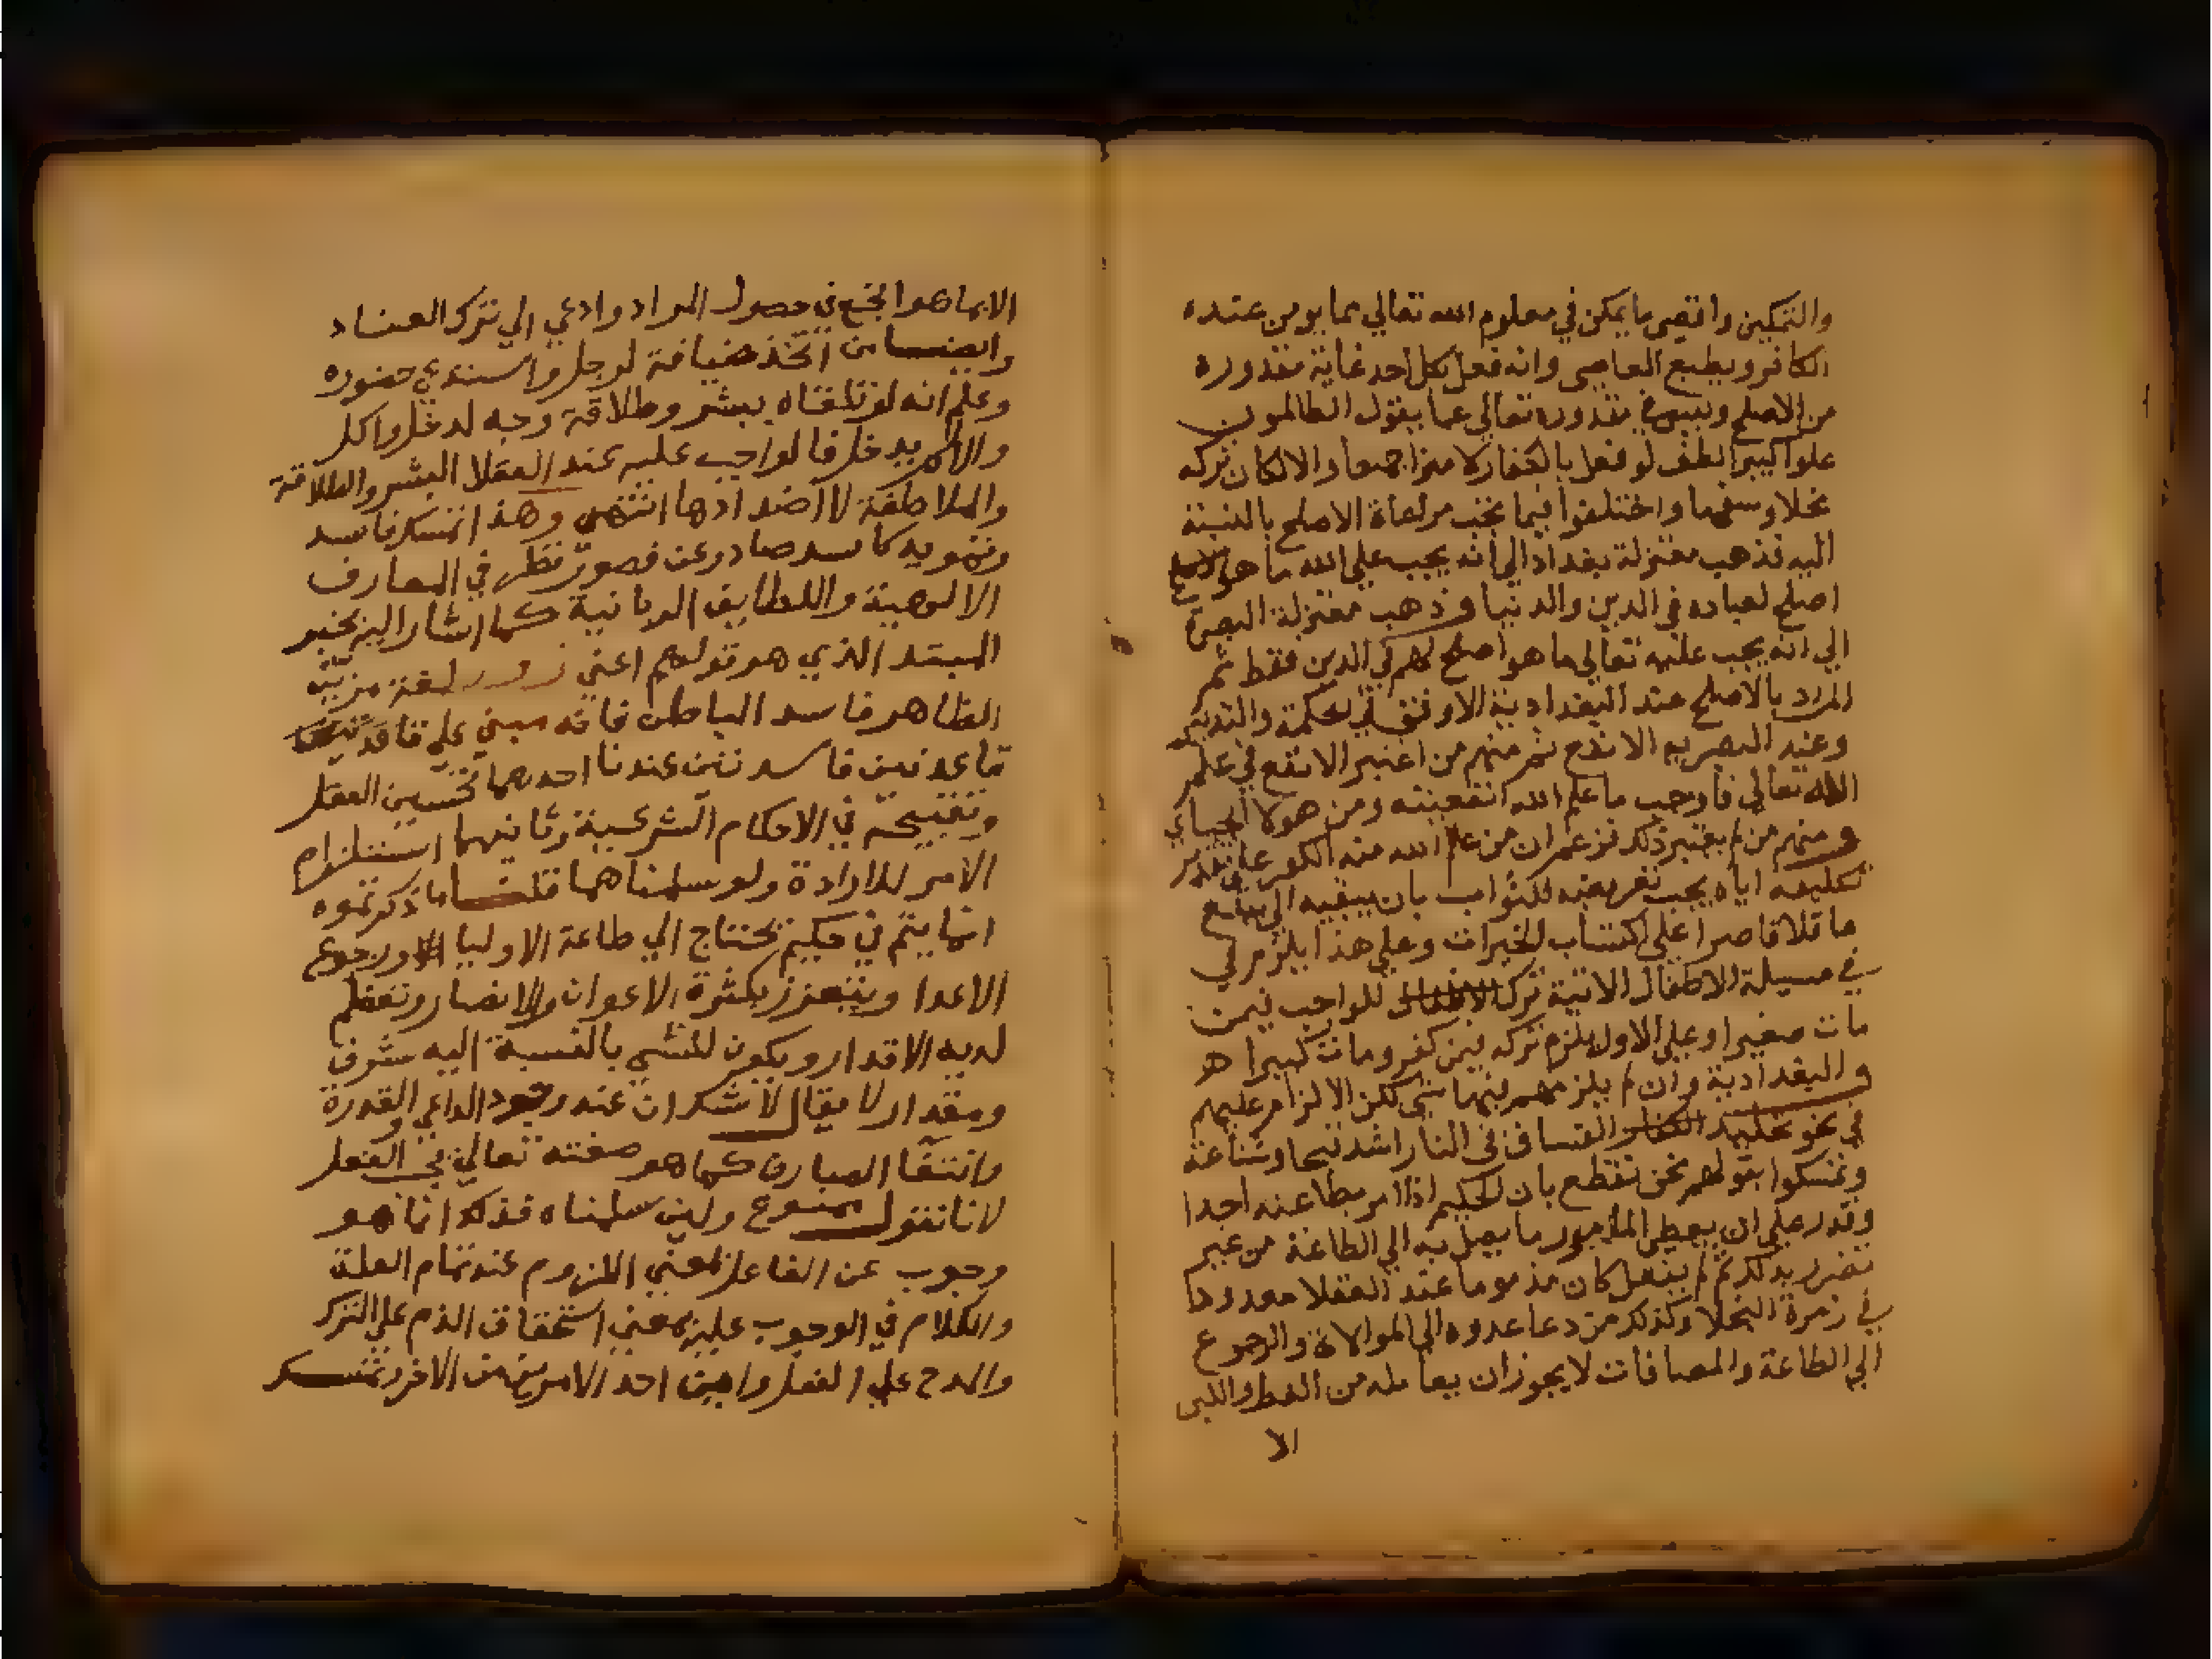 والتمكين واقصى ما يمكن في معلوم الله تعالي مما يومن عنده
الكافر ويطيع العاصي وانه فعل بكل احد غاية مقدوره
من الاصلح وليس في مقدوره تعالي عما يقول الظالمون
علوا كبيرا لطف لو فعل بالكفار لامنوا جميعا والا لكان تركه
بخلا وسفها واختلفوا فيما يجب مراعاة الاصلح بالنسبة
اليه فذهب معتزلة بغداد الي انه يجب علي الله ما هو
اصلح لعباده في الدين والدنيا وذهب معتزلة البصرة
الي انه يجب عليه تعالي ما هو اصلح لهم في الدين فقط ثم
المراد بالاصلح عند البغدادية الاوفق في الحكمة والتدبير
وعند البصريه الانفع ثم منهم من اعتبر الانفع في علم
الله تعالي فاوجب ما علم الله انفعيته ومن هولا الجباي
ومنهم من لم يعتبر ذلك فزعم ان من علم الله منه الكفر علي تقدير
تكليفه اياه يجب تعريضه للثواب بان يبقيه الي يبلغ
عاقلا قاصرا علي اكتساب الخيرات وعلي هذا يلزم في
في مسيلة الاطفال الاتية ترك للواجب فيمن
مات صغيرا وعلي الاول يلزم تركه فيمن كفر ومات كبيرا هر
والبغدادية وان لم يلزمهم فيها شي لكن الالزام عليهم
في نحو تخليد الفساق في النار اشد قبحا وشناعة
وتمسكوا بقولهم نحن نقطع بان الحكيم اذا امر بطاعته احدا
وقدر علي ان يعطي المامور ما يصل به الي الطاعة من غير
تضرر بذلك ثم لم يفعل كان مذموما عند العقلا معدودا
في زمرة البخلا وكذلك من دعا عدوه الي الموالاة والرجوع
الي الطاعة والمصافات لا يجوز ان يعامله من الغلظ واللين
الا
الا بما هو انجع في حصول المراد وادعي الي ترك العناد
وايضا من اتخذ ضيافة لرجل واستدعي حضوره
وعلم انه لو تلقاه ببشر وطلاقة وجه لدخل واكل
والا لم يدخل فالواجب عليه عند العقلا البشر والطلاقة
والملاطفة لا اضدادها انتهي وهذا تمسك فاسد
وتمويه كاسد صادر عن قصور نظر في المعارف
الالوهية واللطايف الربانية كما اشار اليه بخبر
المبتدا الذي هو قولهم اعني مزين
الظاهر فاسد الباطن فانه مبني علي
قاعدتين فاسدتين عندنا احدهما تحسين العقل
وتقبيحه في الاحكام الشرعية وثانيهما استلزام
الامر للارادة ولو سلمناهما قلنا ما ذكرتموه
انما يتم في حكيم يحتاج الي طاعة الاوليا ورجوع
الاعدا ويتعزز بكثرة الاعوان والانصار وتعظم
لديه الاقدار ويكون للشي بالنسبة اليه شرف
ومقدار لا يقال لا شك ان عند وجود الداعي والقدرة
وانتفا الصارف كما هو صفته تعالي يجب الفعل
لانا نقول ممنوع ولين سلمناه فذلك انما هو
وجوب عن الفاعل بمعني اللزوم عند تمام العلة
والكلام في الوجوب عليه بمعني استحقاق الذم علي الترك
والمدح علي الفعل واين احد الامرين من الاخر وتمسك